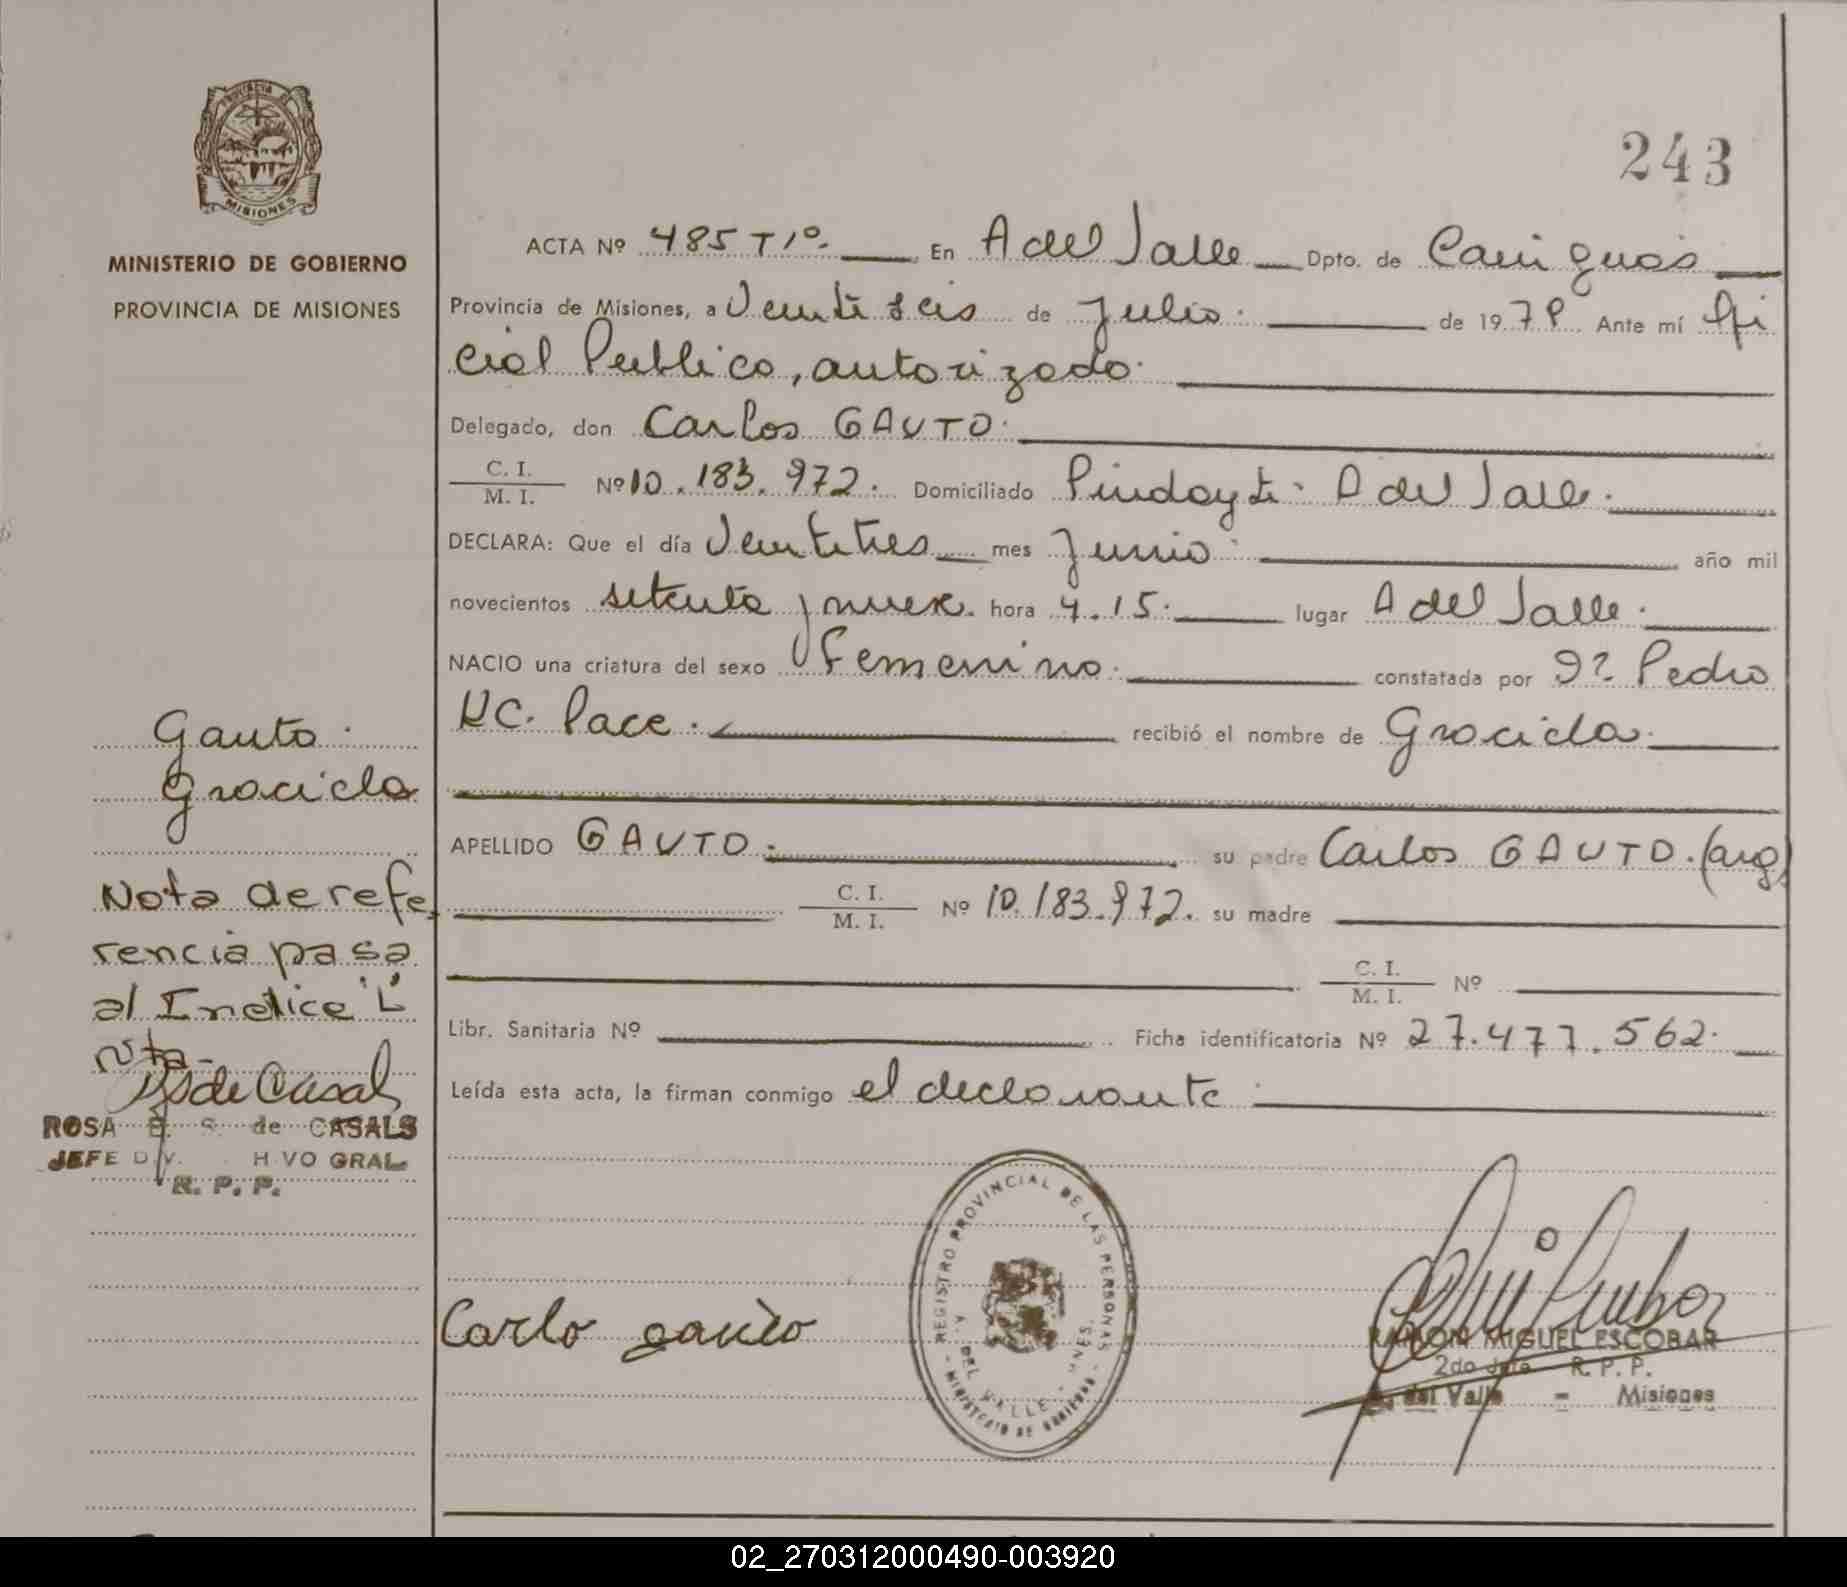 PROVINCIA DE
MISIONES
MINISTERIO DE GOBIERNO
PROVINCIA DE MISIONES
243
ACTA Nº 485 T1º. En A del Valle Dpto. de Cainguás
Provincia de Misiones, a Veintiseis de Julio. de 1979 Ante mí Ofi
cial Publico, autorizado.
Delegado, don Carlos GAUTO.
C. I.
M. I. Nº 10.183.972. Domiciliado Pindayti - A del Valle.
DECLARA: Que el día Veintitres mes Junio. año mil
novecientos setenta y nueve. hora 4.15. lugar A del Valle.
NACIO una criatura del sexo Femenino. constatada por Pedro
Pace. recibió el nombre de Graciela.
APELLIDO GAUTO. su padre Carlos GAUTO. (arg)
C. I.
M. I. Nº 10.183.972. su madre
C. I.
M. I. Nº
Libr. Sanitaria Nº Ficha identificatoria Nº 27.477.562.
Leída esta acta, la firman conmigo el declarante
Gauto.
Graciela
Nota de refe
rencia pasa
al Indice "L"
de Casal
ROSA E. S. de CASALS
JEFE DIV. HIVO GRAL.
R. P. P.
Carlo gauto
REGISTRO PROVINCIAL DE LAS PERSONAS
A. DEL VALLE - MNES.
MINISTERIO DE GOBIERNO
RAMON MIGUEL ESCOBAR
2do Jefe R. P. P.
A. del Valle - Misiones
02_270312000490-003920